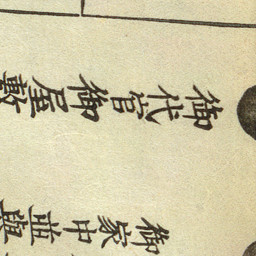 御家中並與
御代官御屋敷